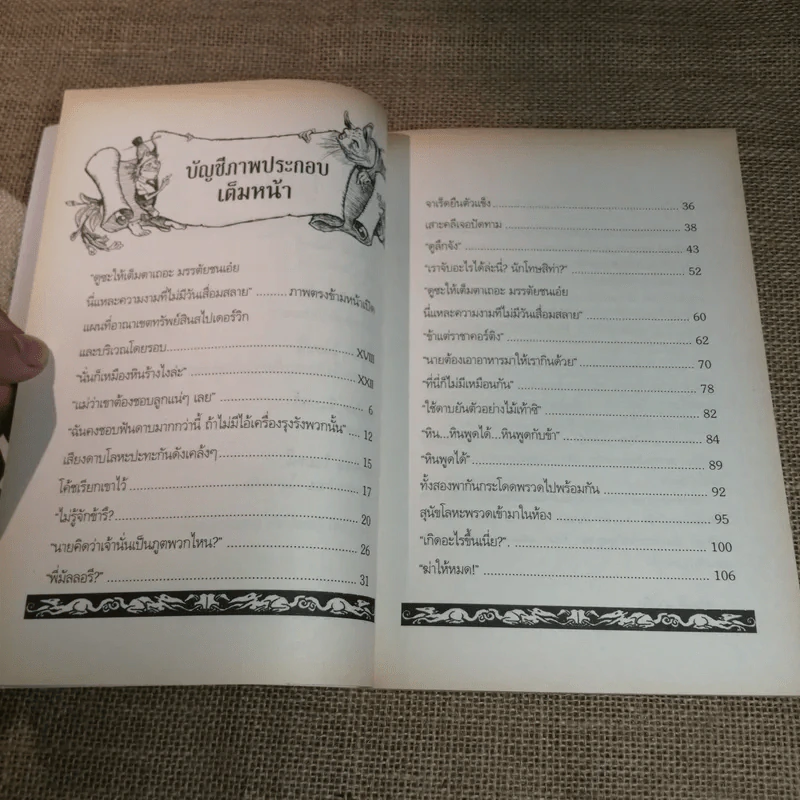 บัญชีภาพประกอบ
เต็มหน้า
"ดูซะให้เต็มตาเถอะ มรรตัยชนเอ๋ย
นี่แหละความงามที่ไม่มีวันเสื่อมสลาย" ........ ภาพตรงข้ามหน้าเปิด
แผนที่อาณาเขตทรัพย์สินสไปเดอร์วิก
และบริเวณโดยรอบ........ XVIII
"นั่นก็เหมืองหินร้างไงล่ะ" ........ XXII
"แม่ว่าเขาต้องชอบลูกแน่ๆ เลย" ........ 6
"ฉันคงชอบฟันดาบมากกว่านี้ ถ้าไม่มีไอ้เครื่องรุงรังพวกนั้น" .... 12
เสียงดาบโลหะปะทะกันดังเคล้งๆ ........ 15
โค้ชเรียกเขาไว้ ........ 17
"ไม่รู้จักข้ารึ? ........ 20
"นายคิดว่าเจ้านั่นเป็นภูตพวกไหน?" ........ 26
"พี่มัลลอรี?" ........ 31
จาเร็ดยืนตัวแข็ง ........ 36
เสาะคลีเจอบัดทาม ........ 38
"ดูลึกจัง" ........ 43
"เราจับอะไรได้ล่ะนี่? นักโทษสิท่า?" ........ 52
"ดูซะให้เต็มตาเถอะ มรรตัยชนเอ๋ย
นี่แหละความงามที่ไม่มีวันเสื่อมสลาย" ........ 60
"ข้าแต่ราชาคอร์ติง" ........ 62
"นายต้องเอาอาหารมาให้เรากินด้วย" ........ 70
"ที่นี่ก็ไม่มีเหมือนกัน" ........ 78
"ใช้ดาบยันตัวอย่างไม้เท้าซิ" ........ 82
"หิน...หินพูดได้...หินพูดกับข้า" ........ 84
"หินพูดได้" ........ 89
ทั้งสองพากันกระโดดพรวดไปพร้อมกัน ........ 92
สุนัขโลหะพรวดเข้ามาในห้อง ........ 95
"เกิดอะไรขึ้นเนี่ย?". ........ 100
"ฆ่าให้หมด!" ........ 106